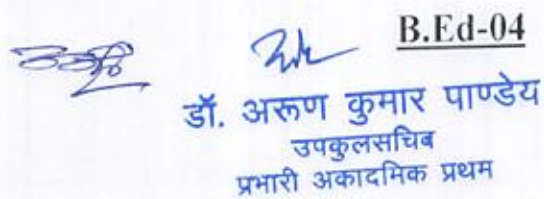 B.Ed-04
डॉ. अरूण कुमार पाण्डेय
उपकुलसचिब
प्रभारी अकादमिक प्रथम